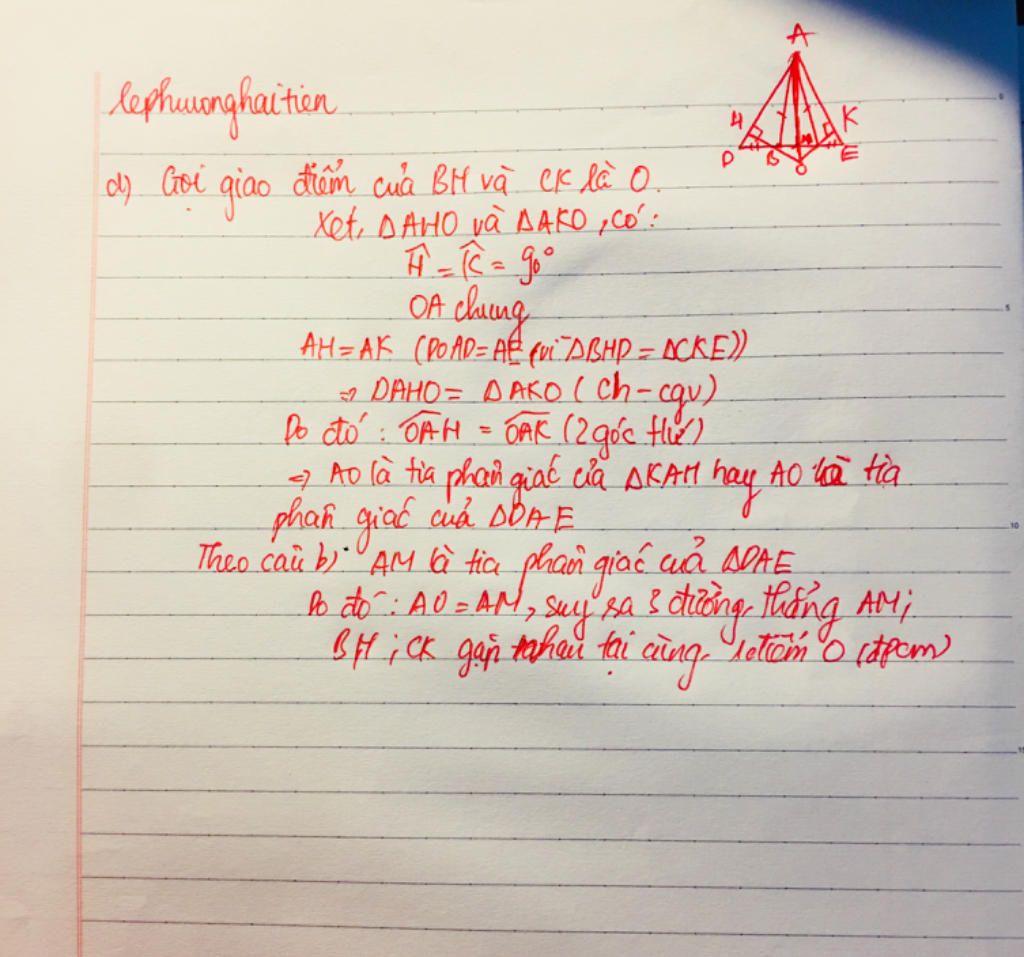 lephuonghaitien
A
H
K
D
B
M
E
O
d) Gọi giao điểm của BH và CK là O.
Xét, ΔAHO và ΔAKO, có:
Ĥ = K̂ = 90°
OA chung
AH = AK (Do AD = AE (vì ΔBHD = ΔCKE))
=> ΔAHO = ΔAKO (ch - cgv)
Do đó: OAH = OAK (2 góc t/ứ)
=> AO là tia phân giác của ΔKAH hay AO là tia
phân giác của ΔDAE
Theo câu b) AM là tia phân giác của ΔDAE
Do đó: AO = AM, suy sa 3 đường thẳng AM;
BH; CK gặp nhau tại cùng 1 điểm O (đpcm)